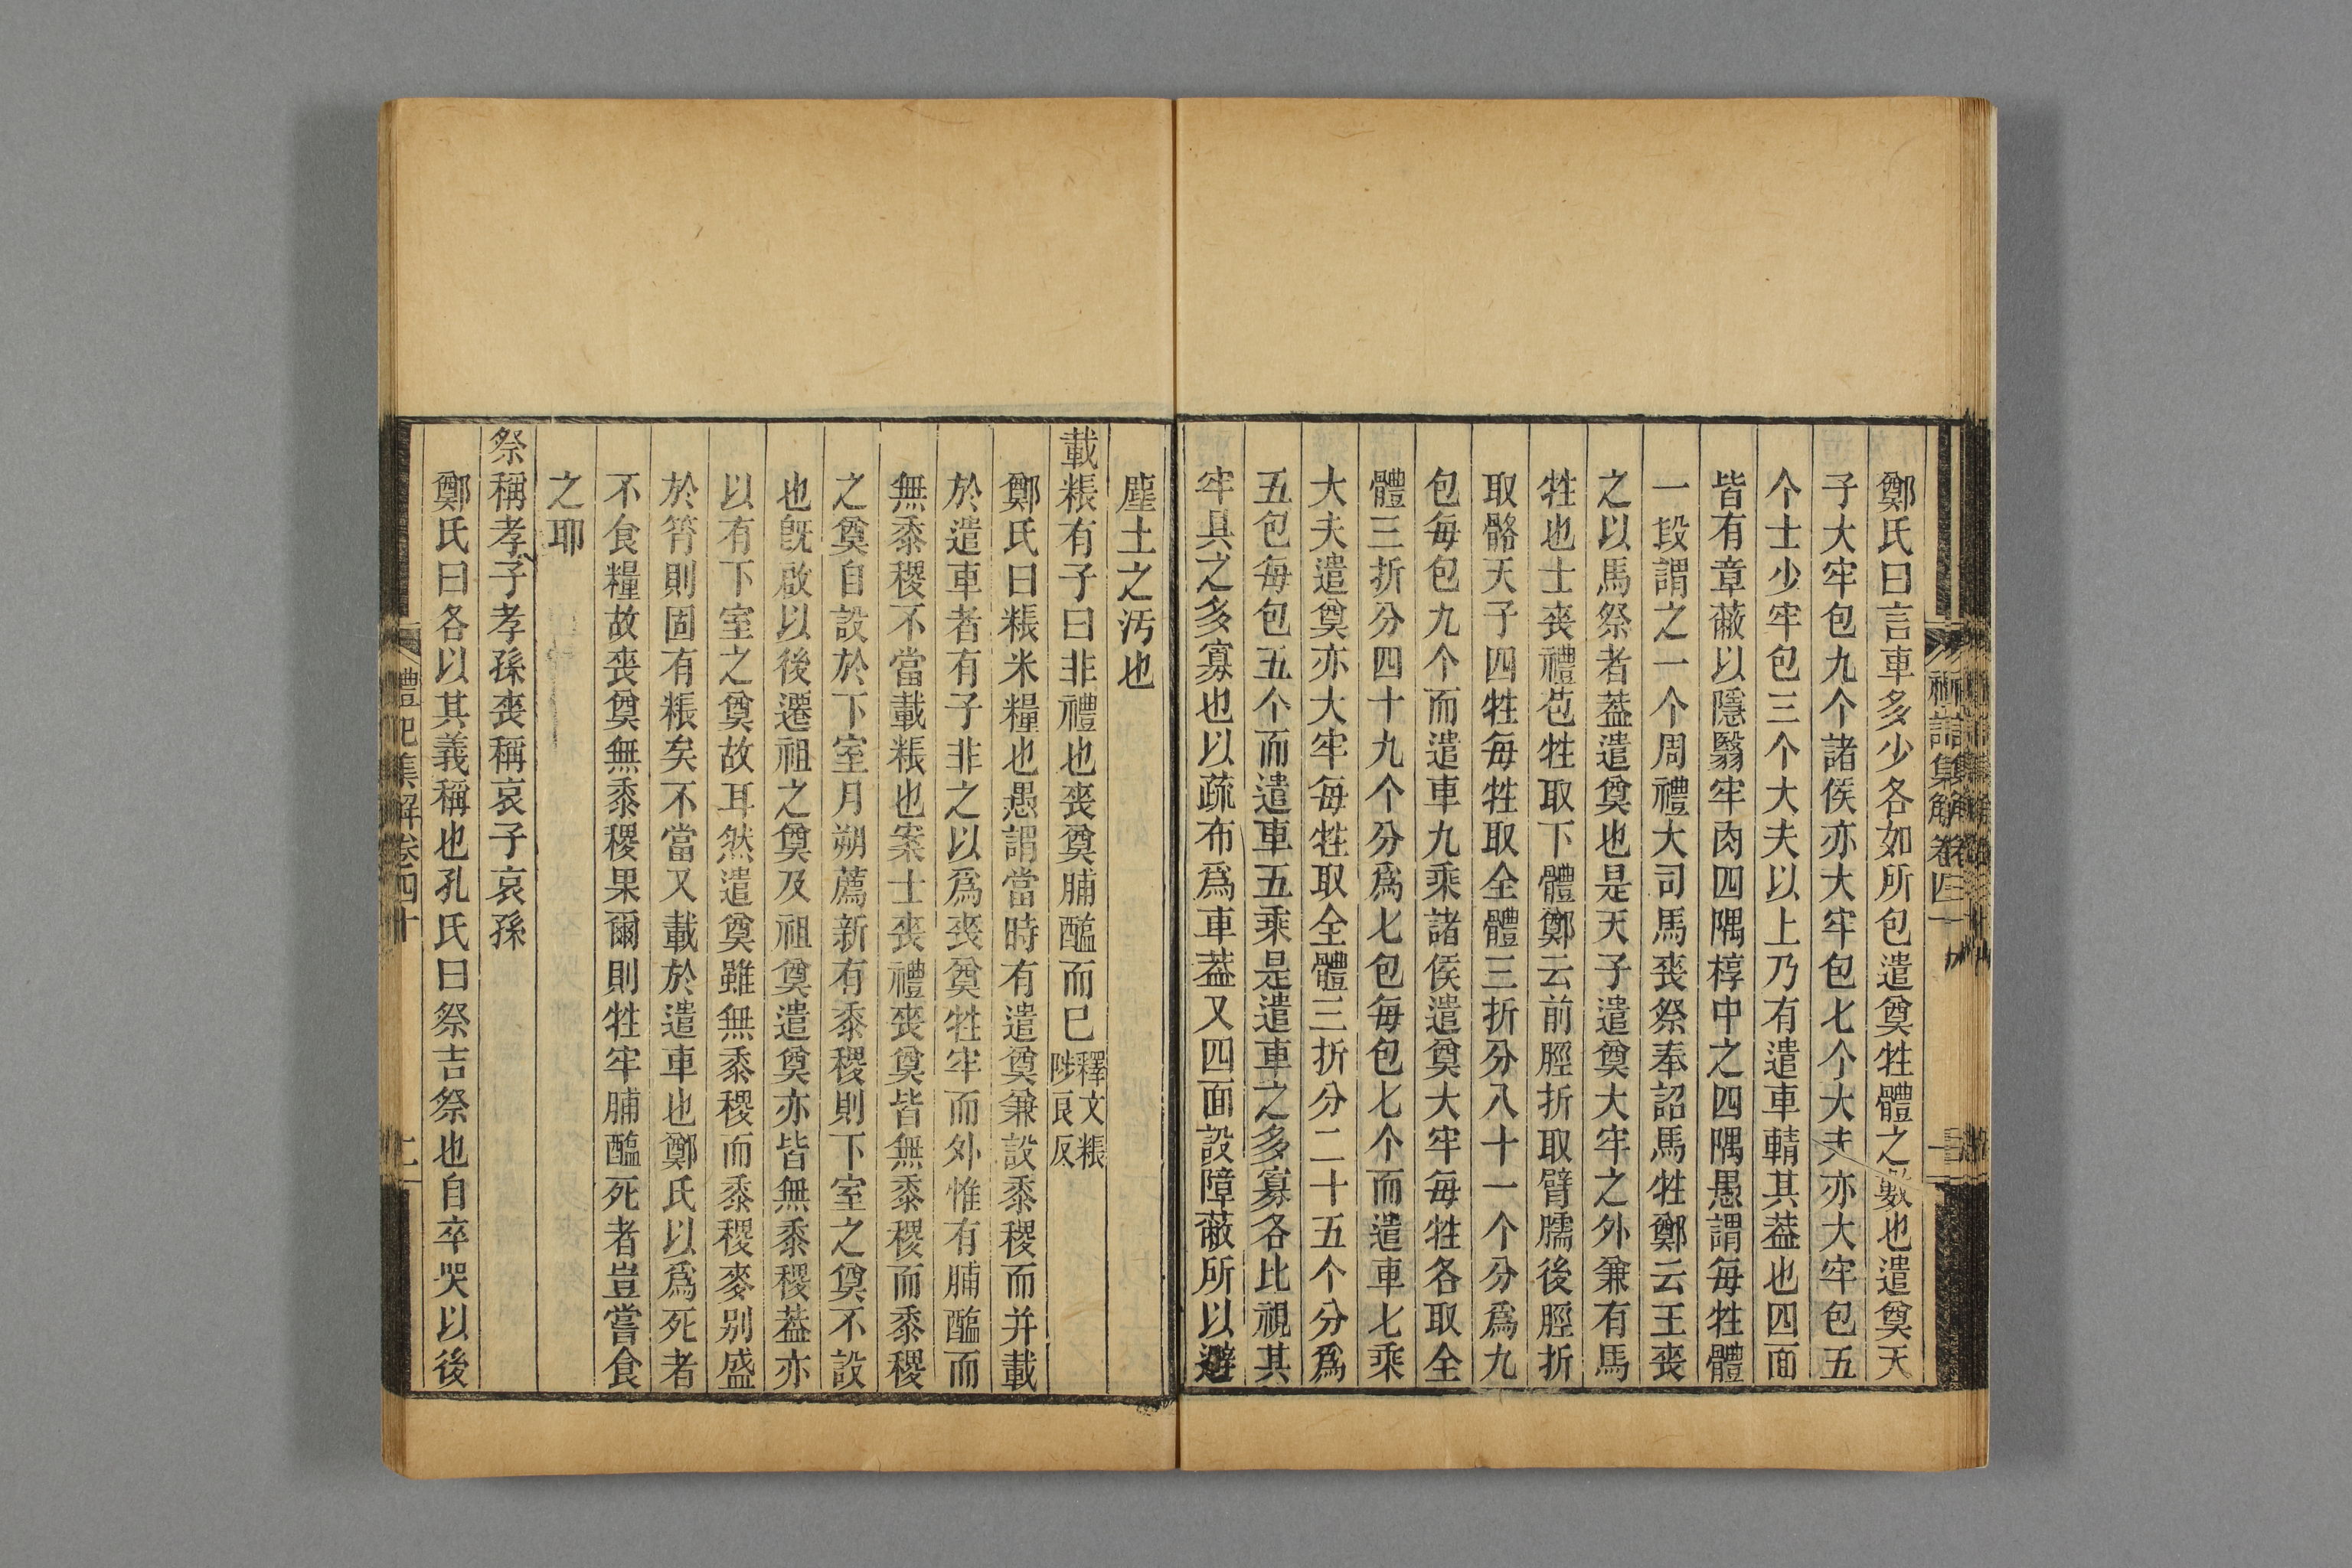 鄭氏曰言車多少各如所包遣奠牲體之數也遣奠天
子大牢包九个諸侯亦大牢包七个大夫亦大牢包五
个士少牢包三个大夫以上乃有遣車輤其葢也四面
皆有章蔽以隱翳牢肉四隅椁中之四隅愚謂每牲體
一段謂之一个周禮大司馬喪祭奉詔馬牲鄭云王喪
之以馬祭者葢遣奠也是天子遣奠大牢之外兼有馬
牲也士喪禮苞牲取下體鄭云前脛折取臂臑後脛折
取骼天子四牲每牲取全體三折分八十一个分爲九
包每包九个而遣車九乘諸侯遣奠大牢每牲各取全
體三折分四十九个分爲七包每包七个而遣車七乘
大夫遣奠亦大牢每牲取全體三折分二十五个分爲
五包每包五个而遣車五乘是遣車之多寡各比視其
牢具之多寡也以疏布爲車葢又四面設障蔽所以避
塵土之汚也
載粻有子曰非禮也喪奠脯醢而已釋文粻陟良反
鄭氏曰粻米糧也愚謂當時有遣奠兼設黍稷而并載
於遣車者有子非之以爲喪奠牲牢而外惟有脯醢而
無黍稷不當載粻也案士喪禮喪奠皆無黍稷而黍稷
之奠自設於下室月朔薦新有黍稷則下室之奠不設
也旣啟以後遷祖之奠及祖奠遣奠亦皆無黍稷葢亦
以有下室之奠故耳然遣奠雖無黍稷而黍稷麥别盛
於筲則固有粻矣不當又載於遣車也鄭氏以爲死者
不食糧故喪奠無黍稷果爾則牲牢脯醢死者豈嘗食
之耶
祭稱孝子孝孫喪稱哀子哀孫
鄭氏曰各以其義稱也孔氏曰祭吉祭也自卒哭以後
禮記集解卷四十